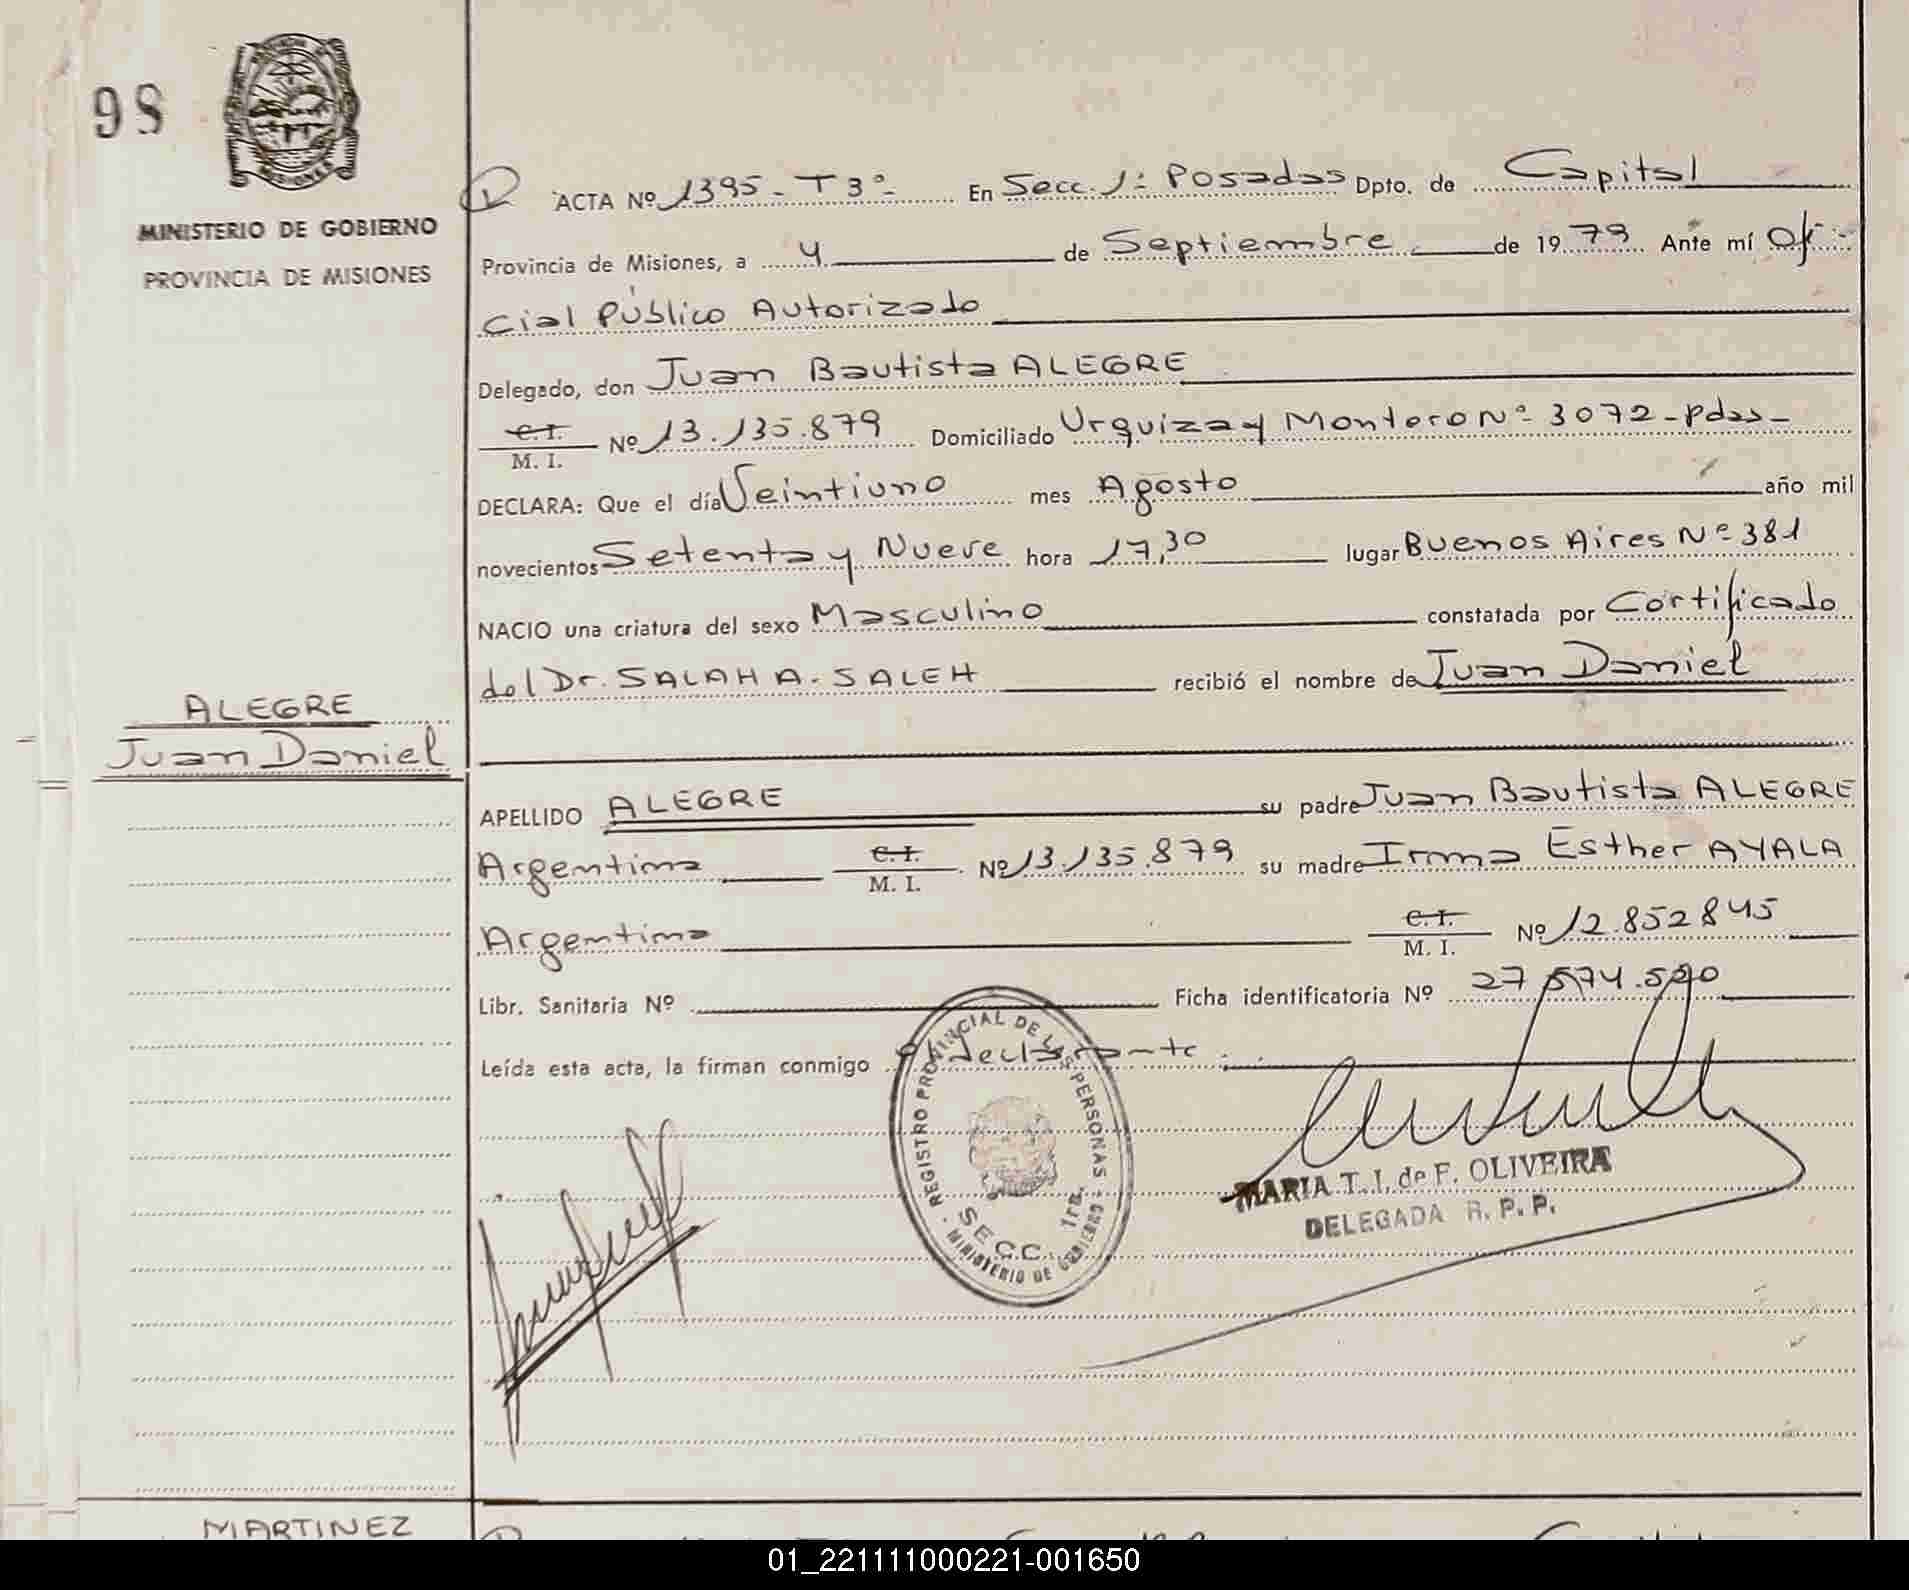 98
MISIONES
MINISTERIO DE GOBIERNO
PROVINCIA DE MISIONES
ALEGRE
Juan Daniel
ACTA Nº 1395 - T 3º - En Secc. 1ª Posadas Dpto. de Capital
Provincia de Misiones, a 4 de Septiembre de 1979 Ante mí Ofi-
cial Público Autorizado
Delegado, don Juan Bautista ALEGRE
C. I.
M. I. Nº 13.135.879 Domiciliado Urquiza y Montoro Nº 3072 - Pdas -
DECLARA: Que el día Veintiuno mes Agosto año mil
novecientos Setenta y Nueve hora 17,30 lugar Buenos Aires Nº 381
NACIO una criatura del sexo Masculino constatada por Certificado
del Dr. SALAH A. SALEH recibió el nombre de Juan Daniel
APELLIDO ALEGRE su padre Juan Bautista ALEGRE
Argentina C. I.
M. I. Nº 13.135.879 su madre Irma Esther AYALA
Argentina C. I.
M. I. Nº 12.852845
Libr. Sanitaria Nº Ficha identificatoria Nº 27.574.520
Leída esta acta, la firman conmigo el declarante
REGISTRO PROVINCIAL DE LAS PERSONAS - MINISTERIO DE GOBIERNO
SECC. 1ra.
MARIA T. I. de F. OLIVEIRA
DELEGADA R. P. P.
MARTINEZ
01_221111000221-001650